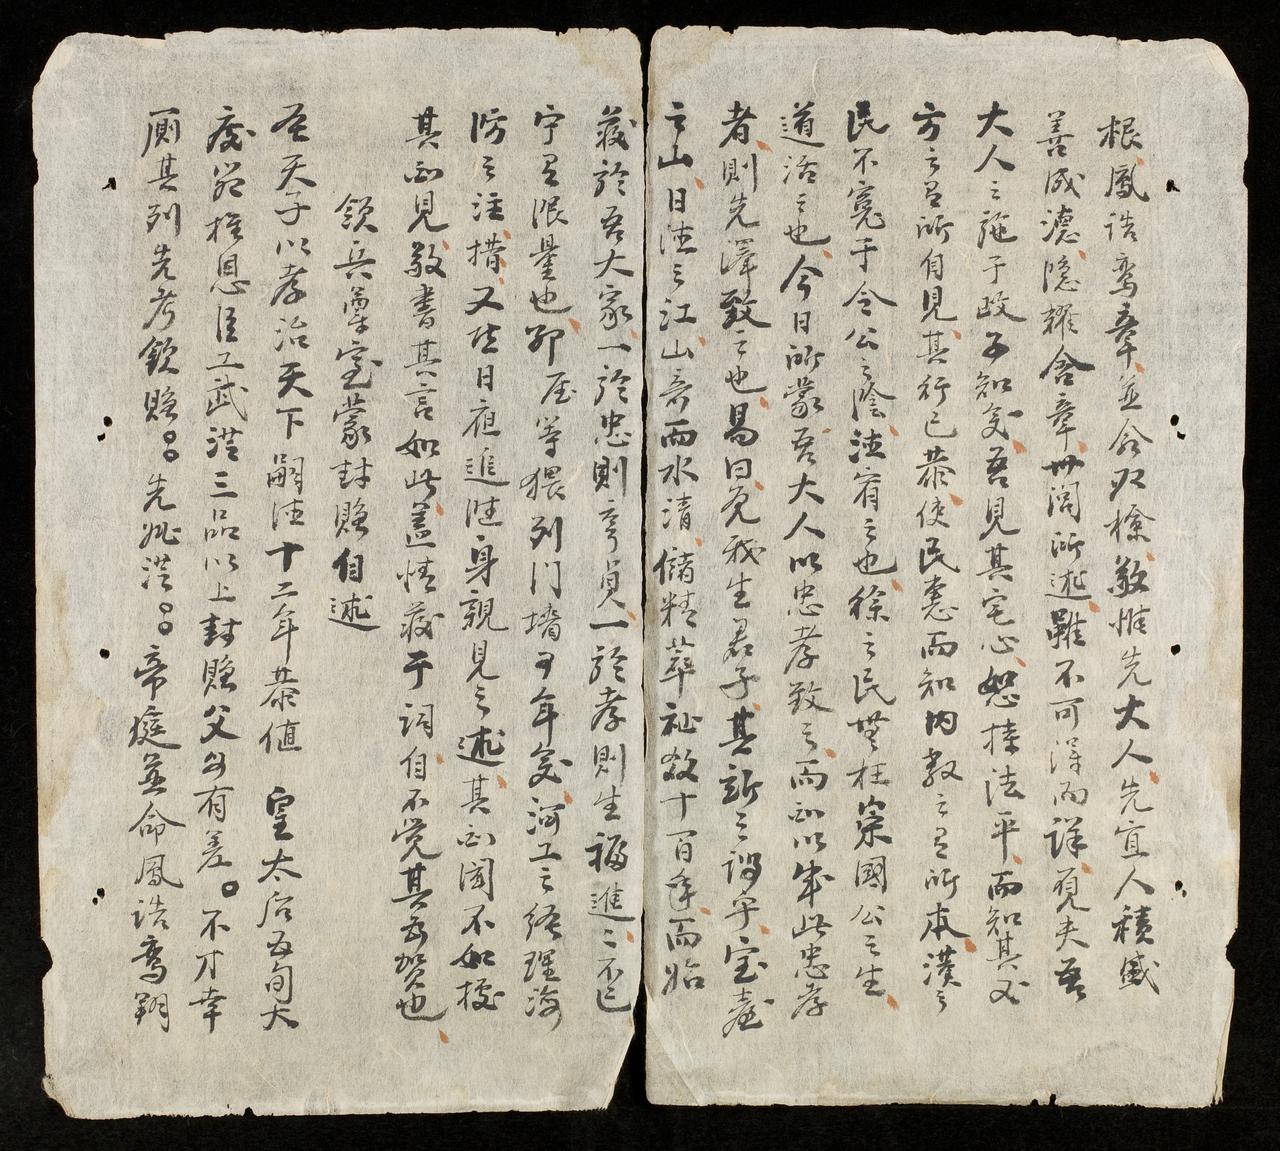 根鳳誥鸞章並含及檢敬惟先大人先宜人積盛
善成德隱耀含章世閥所述雖不可得而詳覓夫吾
大人之施于政者知矣吾見其宅心恕持法平而知其必
方之有所自見其行已恭使民惠而知內教之有所本漢之
民不冤于令公之陰德宥之也徐之民無枉棠國公之生
道活之也今日所蒙吾大人以忠孝致之而所以成此忠孝
者則先澤致之也易曰觀我生君子其所之謂乎寶臺
之山日德之江山奇而水清儲精萃祉數十百年而始
萃於吾大家一於忠則亨貞一於孝則生福進之不已
寧有限量也卯厔等猥列門墻有年矣河工之經理海
防之注措又嘗日夜追陪身親見之述其所聞不如據
其所見敬書其言如此蓋情萃于詞自不覺其為賀也
領兵尊室蒙封贈自述
吾天子以孝治天下嗣德十二年恭值 皇太后五旬大
慶節推恩臣工武洪三品以上封贈父母有差。不才幸
廁其列先考欽贈先妣洪帝庭並命鳳誥鸞翔